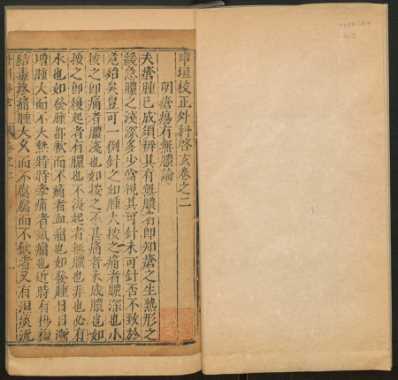 印垣校正外科啓玄卷之二
明瘡瘍有無膿論
夫瘡腫已成須辨其有無膿者即知瘡之生熟形之
緩急膿之淺深多少當視其可針未可針否不致於
危殆矣豈可一例針之如腫大按之痛者膿深也小
按之即痛者膿淺也如按之不甚痛者未成膿也如
按之即復起者有膿也不復起者無膿也非也必有
水也如發腫都軟而不痛者血瘤也如發腫日日漸
增腫大而不大熱時時牽痛者氣瘤也近時有
結毒疼痛腫大久而不腐腐而不斂者又有濕痰流